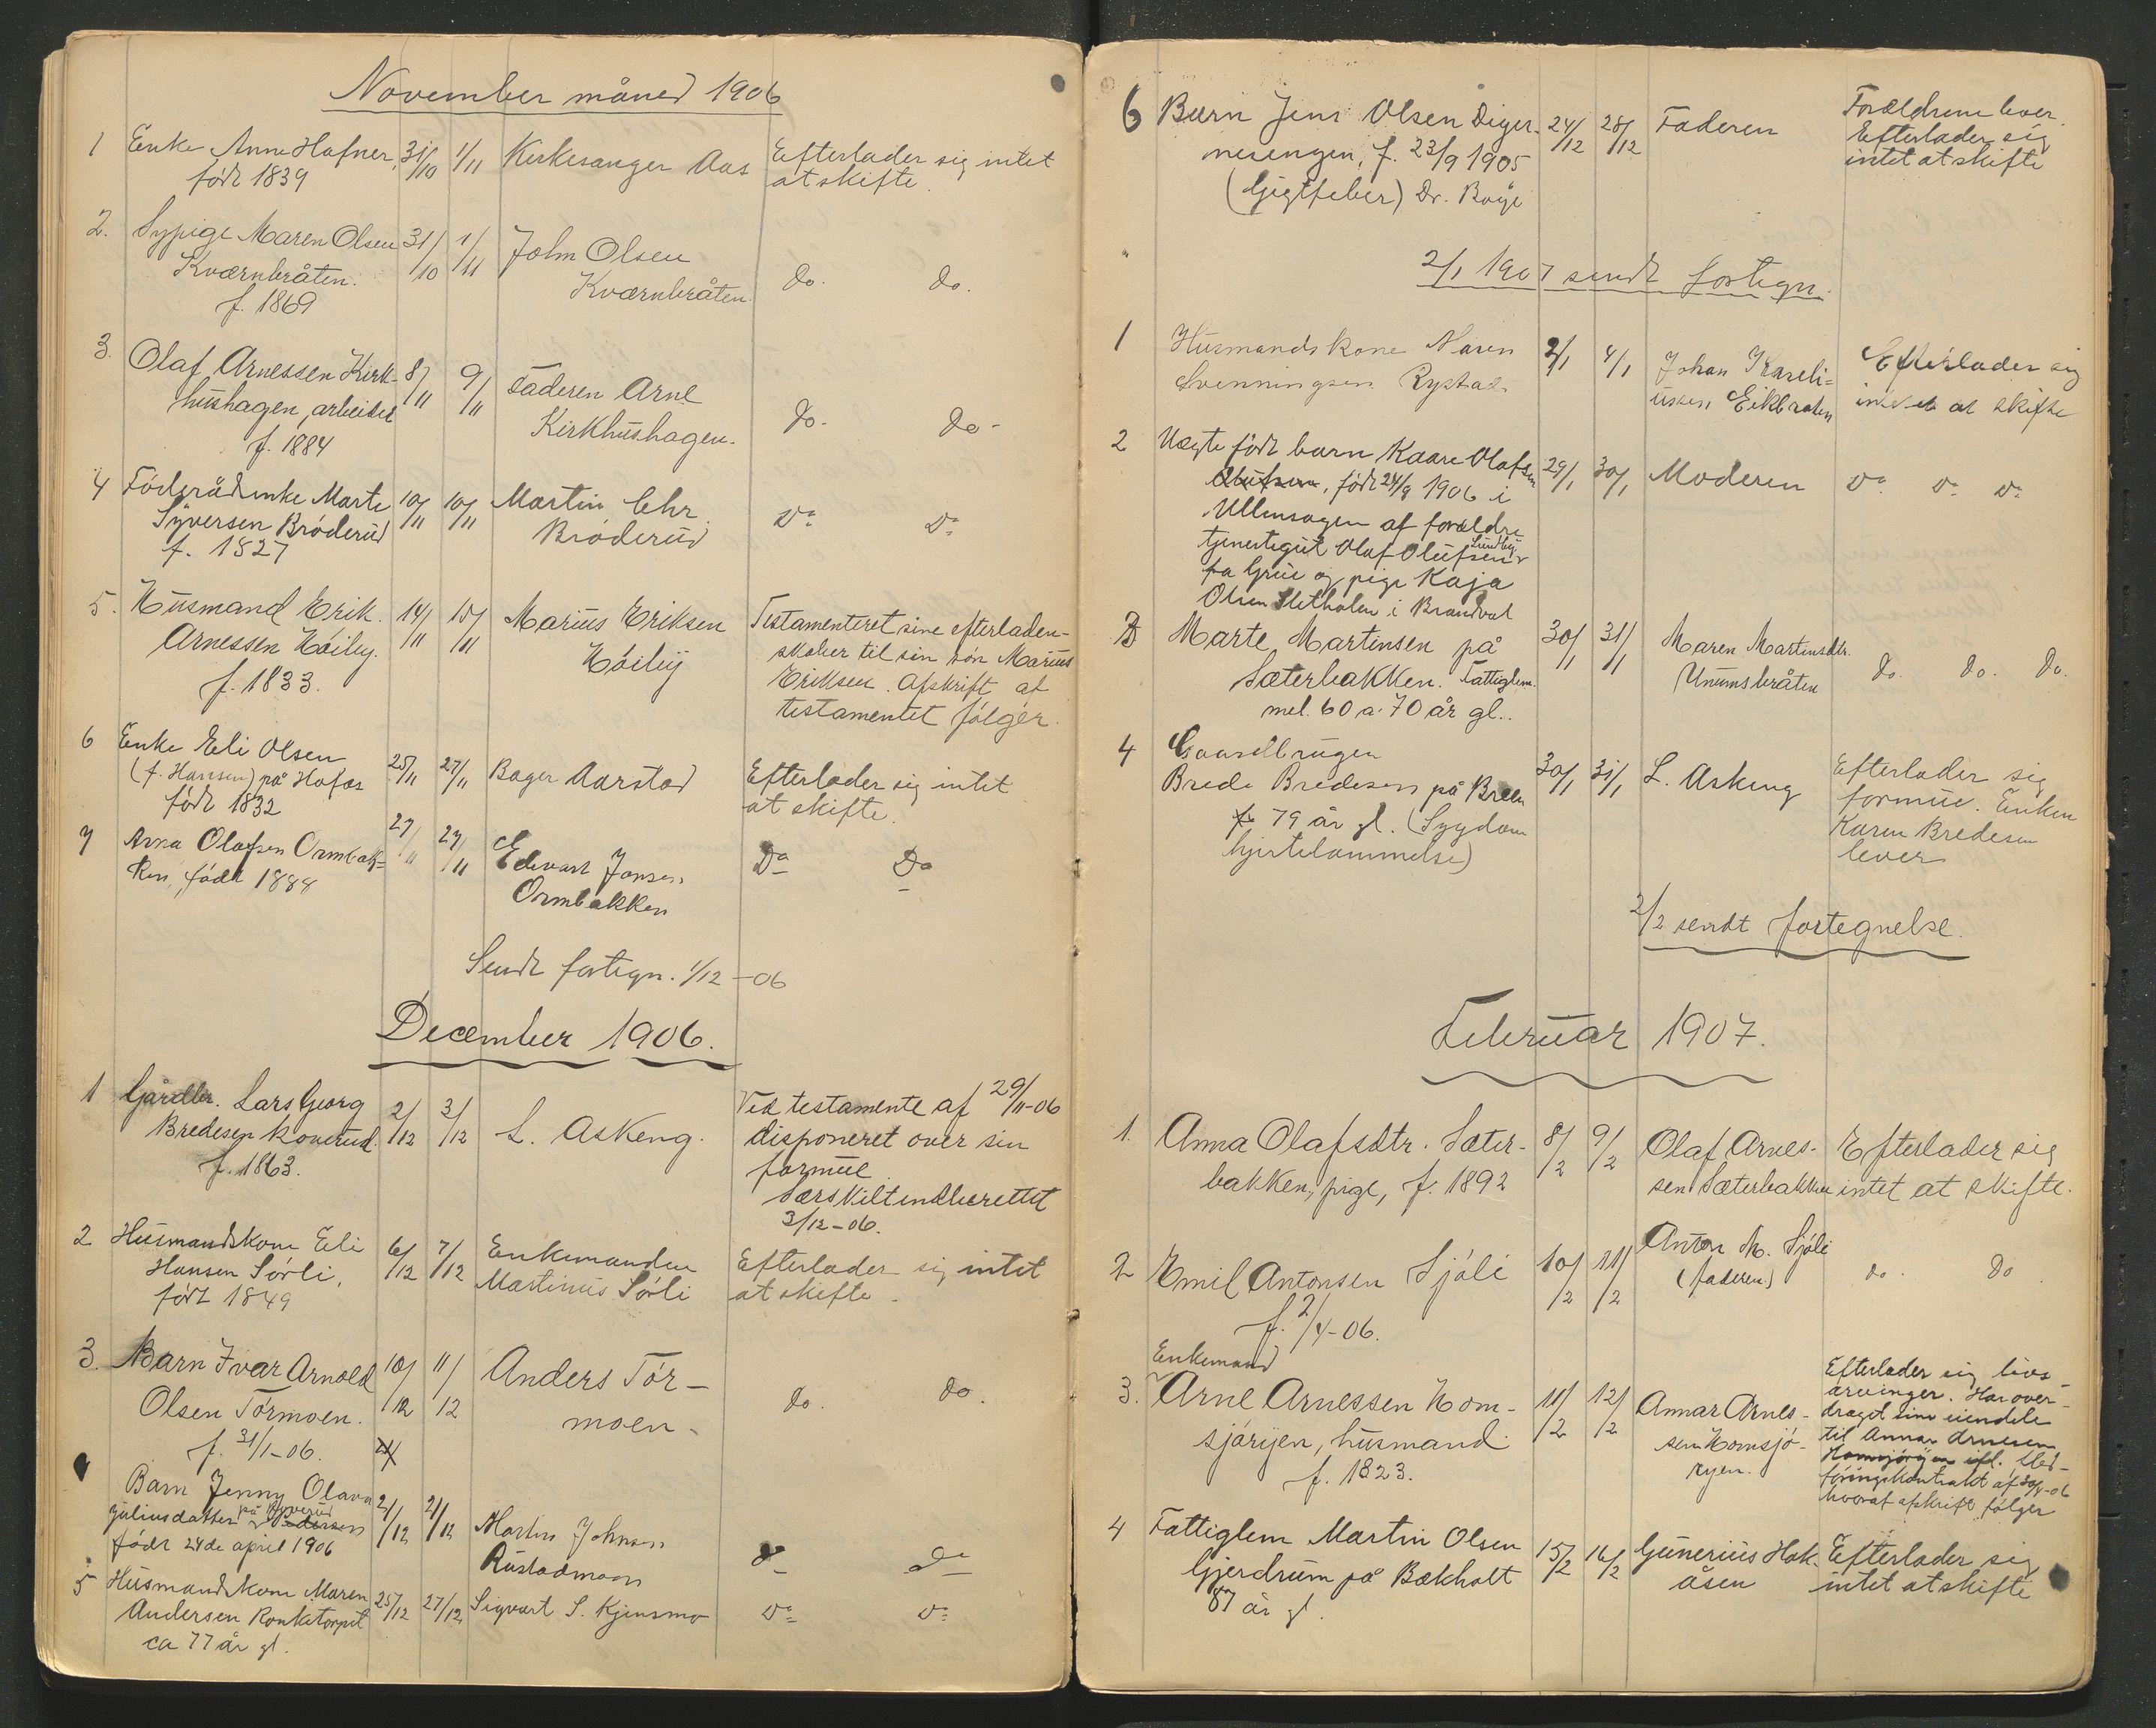 November måned 1906
1 Enke Anne Hafner, 31/10 1/11 Kirkesanger Aas Efterlader sig intet
født 1839 at skifte.
2. Sypige Maren Olsen 31/10 1/11 John Olsen
Kværnbråten. Kværnbråten do. do.
f. 1869
3. Olaf Arnessen Kirk- 8/11 9/11 Faderen Arne
hushagen, arbeider Kirkhushagen. do. do.
f. 1884
4 Föderådenke Marte 10/11 10/11 Martin Chr.
Syversen Bröderud Bröderud Do Do
f. 1827
5. Husmand Erik 14/11 15/11 Marius Eriksen Testamenteret sine efterladen-
Arnessen Höiby. Höiby skaber til sin sön Marius
f. 1833. Eriksen. Afskrift af
testamentet fölger.
6 Enke Eli Olsen
(f. Hansen) på Hofos 25/11 27/11 Bager Aarstad Efterlader sig intet
født 1832 at skifte.
7 Anna Olafsen Ormbak- 27/11 27/11 Edevart Jonsen Do Do
ken, född 1888 Ormbakken
Sendt fortegn. 1/12-06
December 1906.
1 Gårdbr. Lars Georg 2/12 3/12 L. Askeng. Ved testamente af 29/11-06
Bredesen Konerud. disponeret over sin
f. 1863. formue.
Særskilt indberettet
3/12-06.
2 Husmandskone Eli 6/12 7/12 Enkemanden Efterlader sig intet
Hansen Sörli, Martinus Sörli at skifte.
født 1849
3. Barn Ivar Arnold 10/12 11/12 Anders Tör-
Olsen Törmoen. moen. do. do.
f. 31/1-06.
Barn Jenny Olava 21/12 21/12 Martin Johnsen
Juliusdatter på Pedersen Rustadmoen do do
født 24de april 1906
5 Husmandskone Maren 25/12 27/12 Sigvart S. Kjensmo Do Do
Andersen Ronketorpet
ca 77 år gl.
6 Barn Jens Olsen Diger- 24/12 28/12 Faderen Forældrene lever.
nesengen, f. 23/9 1905 Efterlader sig
(Gigtfeber) Dr. Boye intet at skifte
2/1 1907 sendt fortegn.
1 Husmandskone Maren 2/1 4/1 Johan Kareli- Efterlader sig
Svenningsen Rystad. ussen Eikbraten intet at skifte
2 Uægte født barn Kaare Olafsen 29/1 30/1 Moderen Do Do Do
Olufsen, født 24/9 1906 i
Ullensagen af forældre
tjenestegut Olaf Olufsen Lundby
fra Grue og pige Kaja
Olsen Sletholen i Brandval
3 Marte Martinsen på 30/1 31/1 Maren Martinsdtr.
Sæterbakken. Fattiglem. Unumsbråten do. do. do.
mel. 60 a 70 år gl..
4 Gaardbrugen
Brede Bredesen på Breen 30/1 31/1 L. Askeng Efterlader sig
79 år gl. (Sygdom formue. Enken
hjertelammelse) Karen Bredesen
lever
2/2 sendt fortegnelse.
Februar 1907.
1. Anna Olafsdtr. Sæter- 8/2 9/2 Olaf Arnes- Efterlader sig
bakken, pige, f. 1892 sen Sæterbakken intet at skifte.
2 Emil Antonsen Sjöli 10/2 11/2 Anton M. Sjöli do. do.
f. 2/4-06. (faderen)
Enkemand
3. Arne Arnessen Hom- 11/2 12/2 Annar Arnes- Efterlader sig livs-
sjöryen, husmand. sen Homsjö- arvinger. Har over-
f. 1823. ryen. draget sine eiendele
til Annar Arnesen
Homsjöryen ifl.
föringskontrakt af
hvoraf afskrift fölger
4 Fattiglem Martin Olsen 15/2 16/2 Gunerius Hok- Efterlader sig
Gjerdrum på Bækholt åsen intet at skifte
87 år gl.